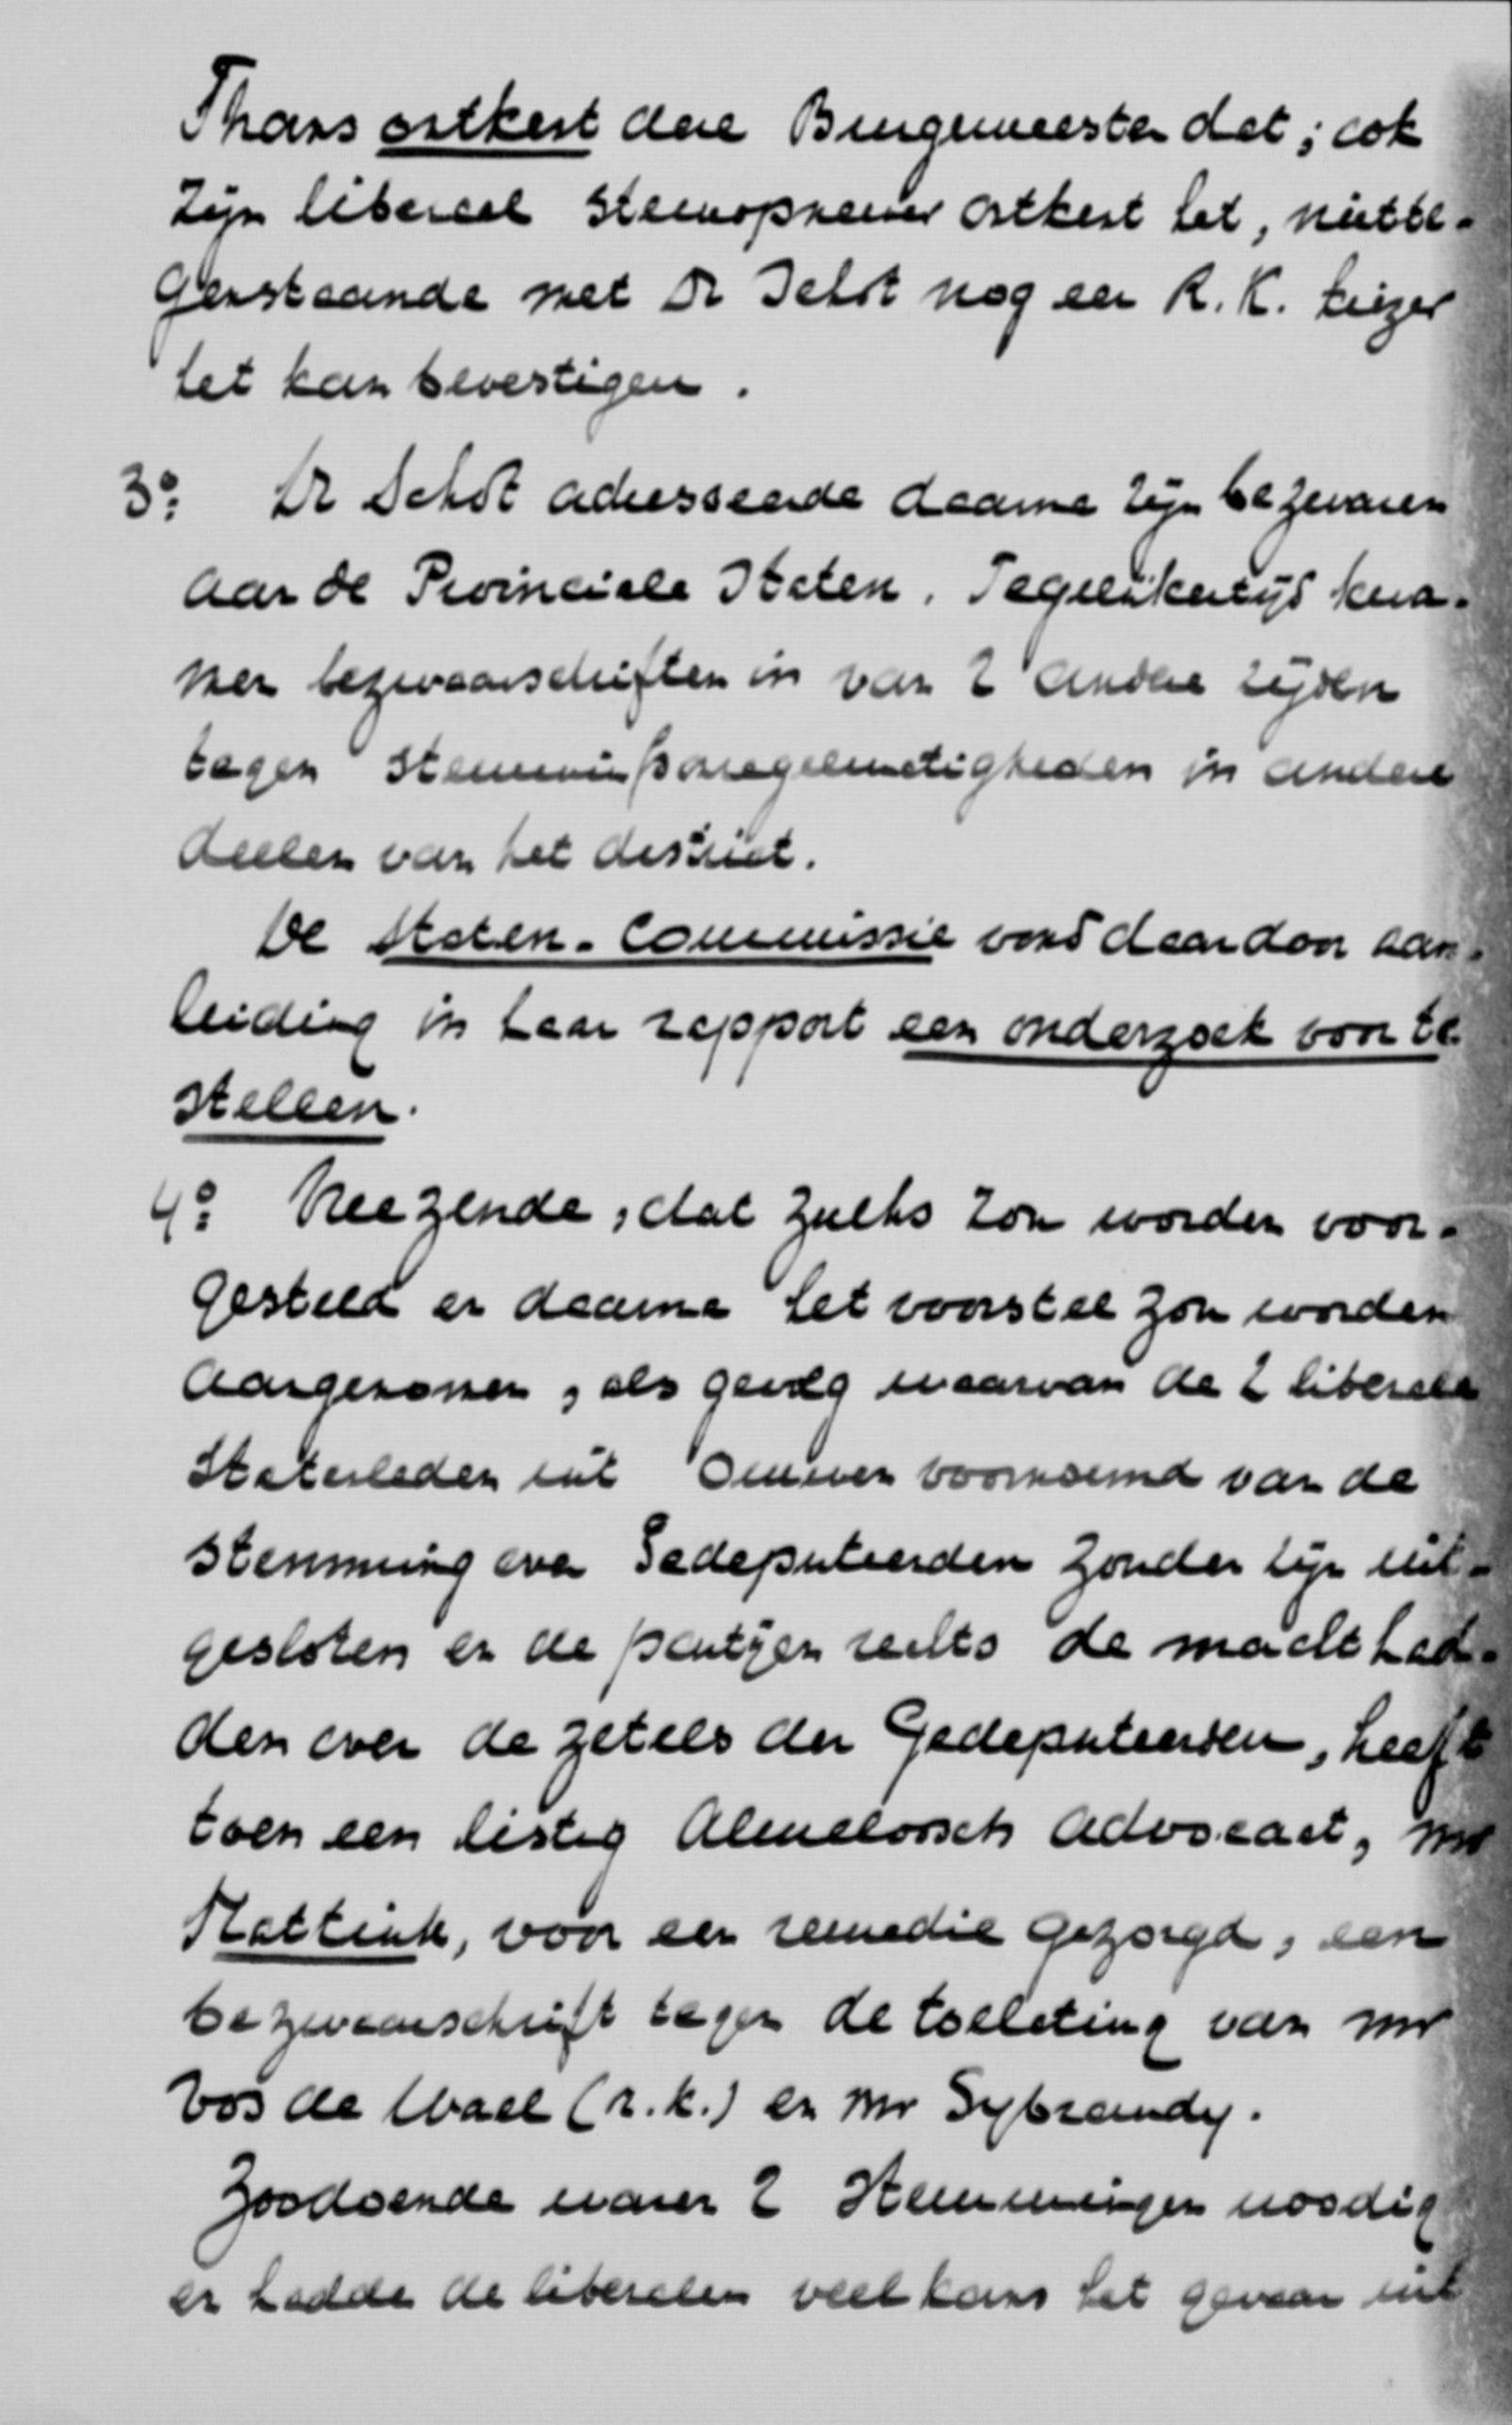 Thans ontkent deze Burgemeester dat; ook
zijn liberaal stemopnemer ontkent het, niette-
genstaande met Dr Schot nog een R.K. kiezer
het kan bevestigen.
3o: Dr Schot adresseerde daarna zijn bezwaren
aan de Provinciale Staten. Tegelijkertijd kwa-
men bezwaarschriften in van 2 andere zijden
tegen stemmingsonregelmatigheden in andere
deelen van het district.
De Staten-Commissie vond daardoor aan-
leiding in haar rapport een onderzoek voor te
stellen.
4o: Vreezende, dat zulks zou worden voor-
gesteld en daarna het voorstel zou worden
aangenomen, als gevolg waarvan de 2 liberale
Statenleden uit Ommen voornoemd van de
stemming over Gedeputeerden zouden zijn uit-
gesloten en de partijen rechts de macht had-
den over de zetels der Gedeputeerden, heeft
toen een listig Almeloosch advocaat, mr
Plattink, voor een remedie gezorgd, een
bezwaarschrift tegen de toelating van mr
Vos de Wael (r.k.) en Mr Sybrandy.
Zoodoende waren 2 stemmingen noodig
en hadden de liberalen veel kans het gevaar uit